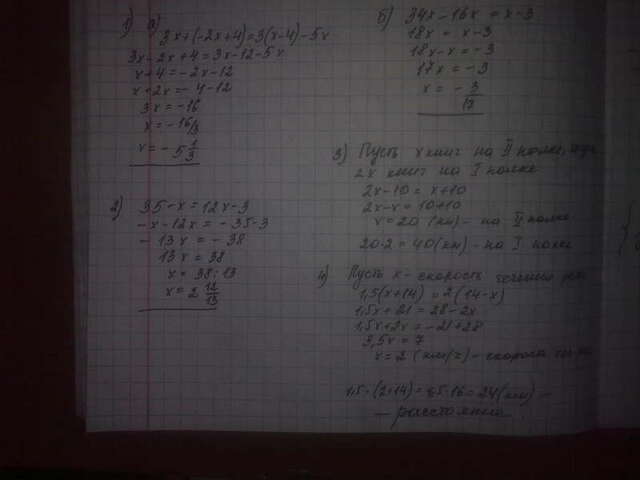 1) а)
3x+(-2x+4)=3(x-4)-5x
3x-2x+4=3x-12-5x
x+4=-2x-12
x+2x=-4-12
3x=-16
x=-16/3
x=-5 1/3
2) 35-x=12x-3
-x-12x=-35-3
-13x=-38
13x=38
x=38:13
x=2 12/13
б) 34x-16x=x-3
18x=x-3
18x-x=-3
17x=-3
x=-3/17
3) Пусть x книг на II полке,
2x книг на I полке
2x-10=x+10
2x-x=10+10
x=20 (кн)-на II полке
20·2=40(кн)-на I полке
4) Пусть x-скорость течения реки
1,5(x+14)=2(14-x)
1,5x+21=28-2x
1,5x+2x=-21+28
3,5x=7
x=2 (км/ч)-скорость
1,5·(2+14)=1,5·16=24(км)-
-расстояние